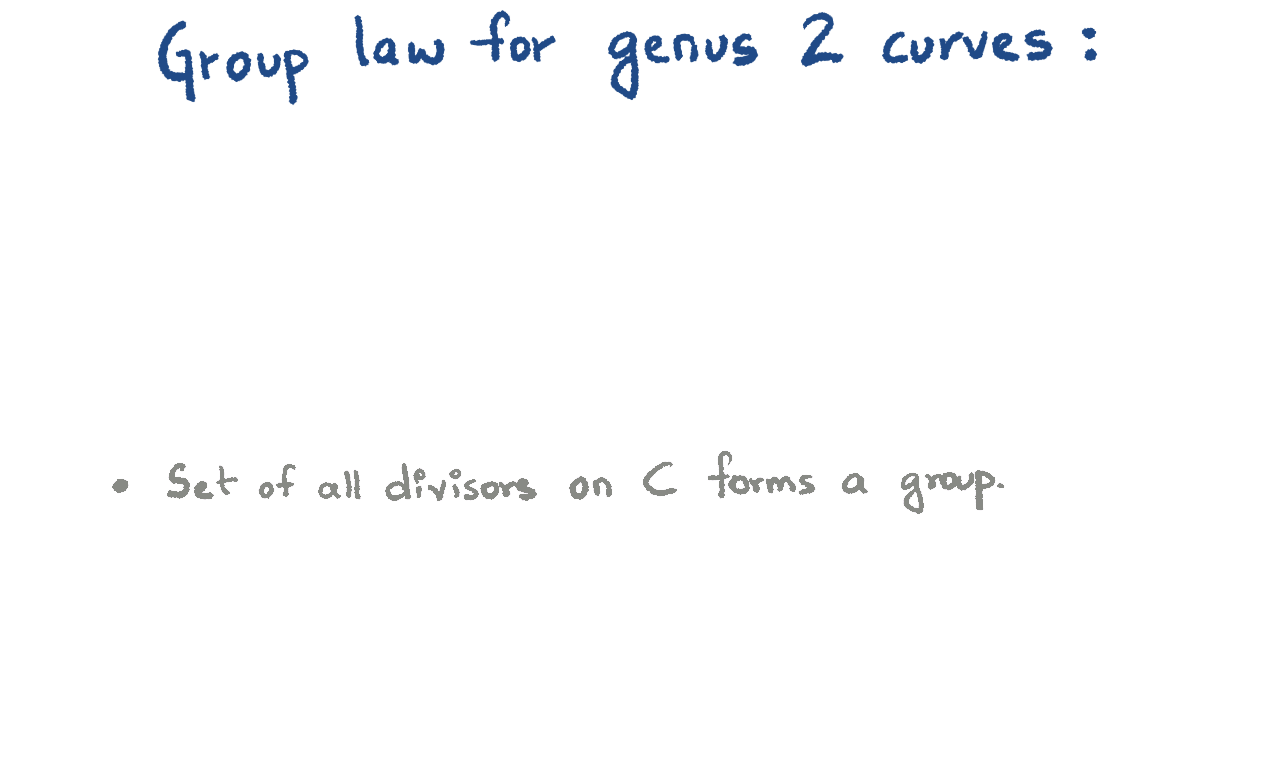 Group law for genus 2 curves :
• Set of all divisors on C forms a group.